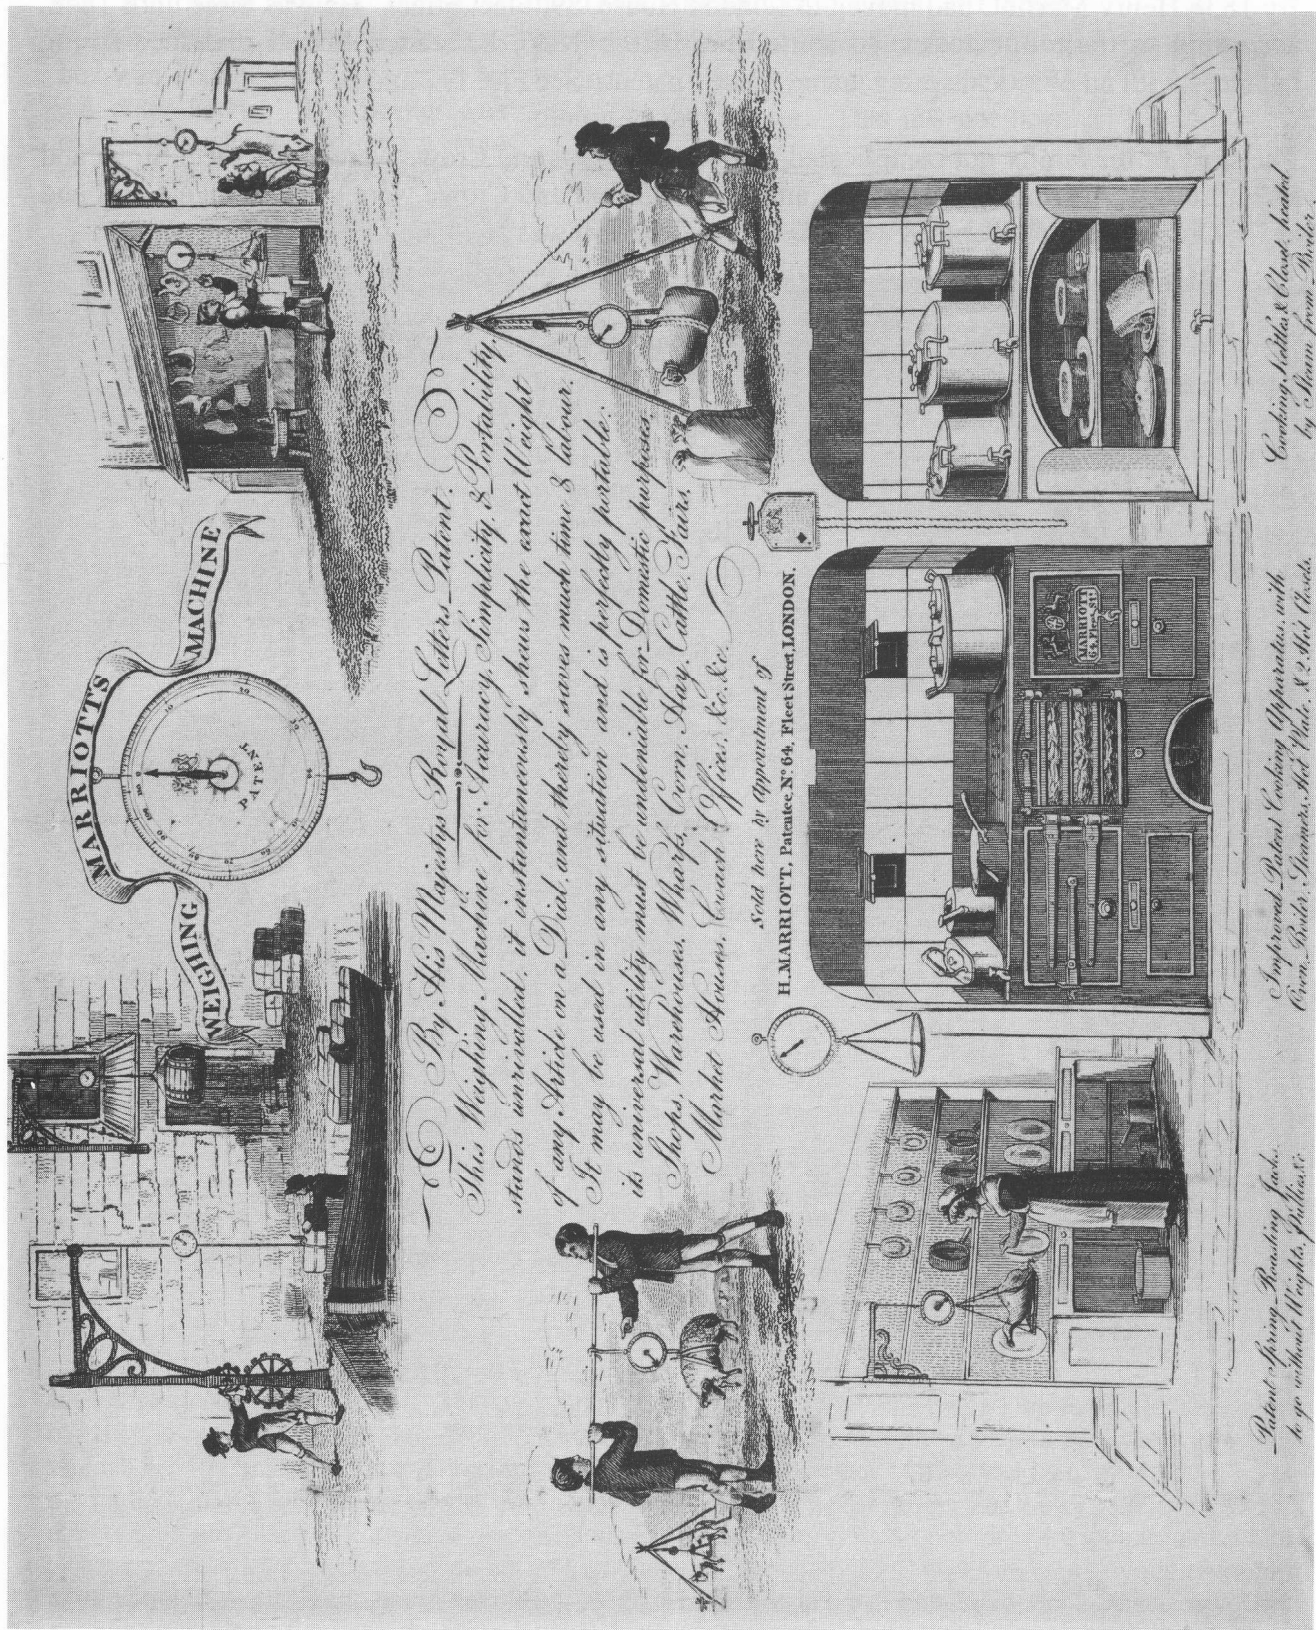 MARRIOTTS
WEIGHING MACHINE
PATENT
By His Majestys Royal Letters Patent.
This Weighing Machine for Accuracy, Simplicity, & Portability,
stands unrivalled, it instantaneously shews the exact Weight
of any Article on a Dial, and thereby saves much time & labour.
It may be used in any situation and is perfectly portable:
its universal utility must be undeniable for Domestic purposes,
Shops, Warehouses, Wharfs, Corn, Hay, Cattle, Fairs,
Market Houses, Coach Offices, &c. &c.
Sold here by Appointment of
H. MARRIOTT, Patentee, No. 64, Fleet Street, LONDON.
MARRIOTT
64, Fleet St.
Patent Spring Roasting Jacks,
to go without Weights, Pullies &c.
Improved Patent Cooking Apparatus, with
Oven, Boiler, Steamer, Hot Plate, & 2 Ash Closets.
Cooking Kettles, & Closet, heated
by Steam from Boiler